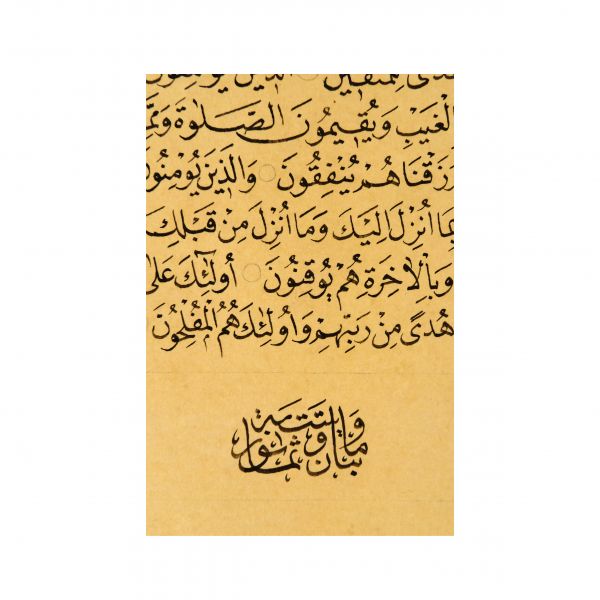 هُدًى لِلْمُتَّقِينَ ○ الَّذِينَ يُؤْمِنُونَ
لْغَيْبِ وَيُقِيمُونَ الصَّلٰوةَ وَمِمَّ
رَزَقْنَاهُمْ يُنْفِقُونَ ○ وَالَّذِينَ يُؤْمِنُونَ
بِمَا أُنْزِلَ إِلَيْكَ وَمَا أُنْزِلَ مِنْ قَبْلِكَ
وَبِالْآخِرَةِ هُمْ يُوقِنُونَ ○ أُولٰئِكَ عَلٰى
هُدًى مِنْ رَبِّهِمْ وَأُولٰئِكَ هُمُ الْمُفْلِحُونَ